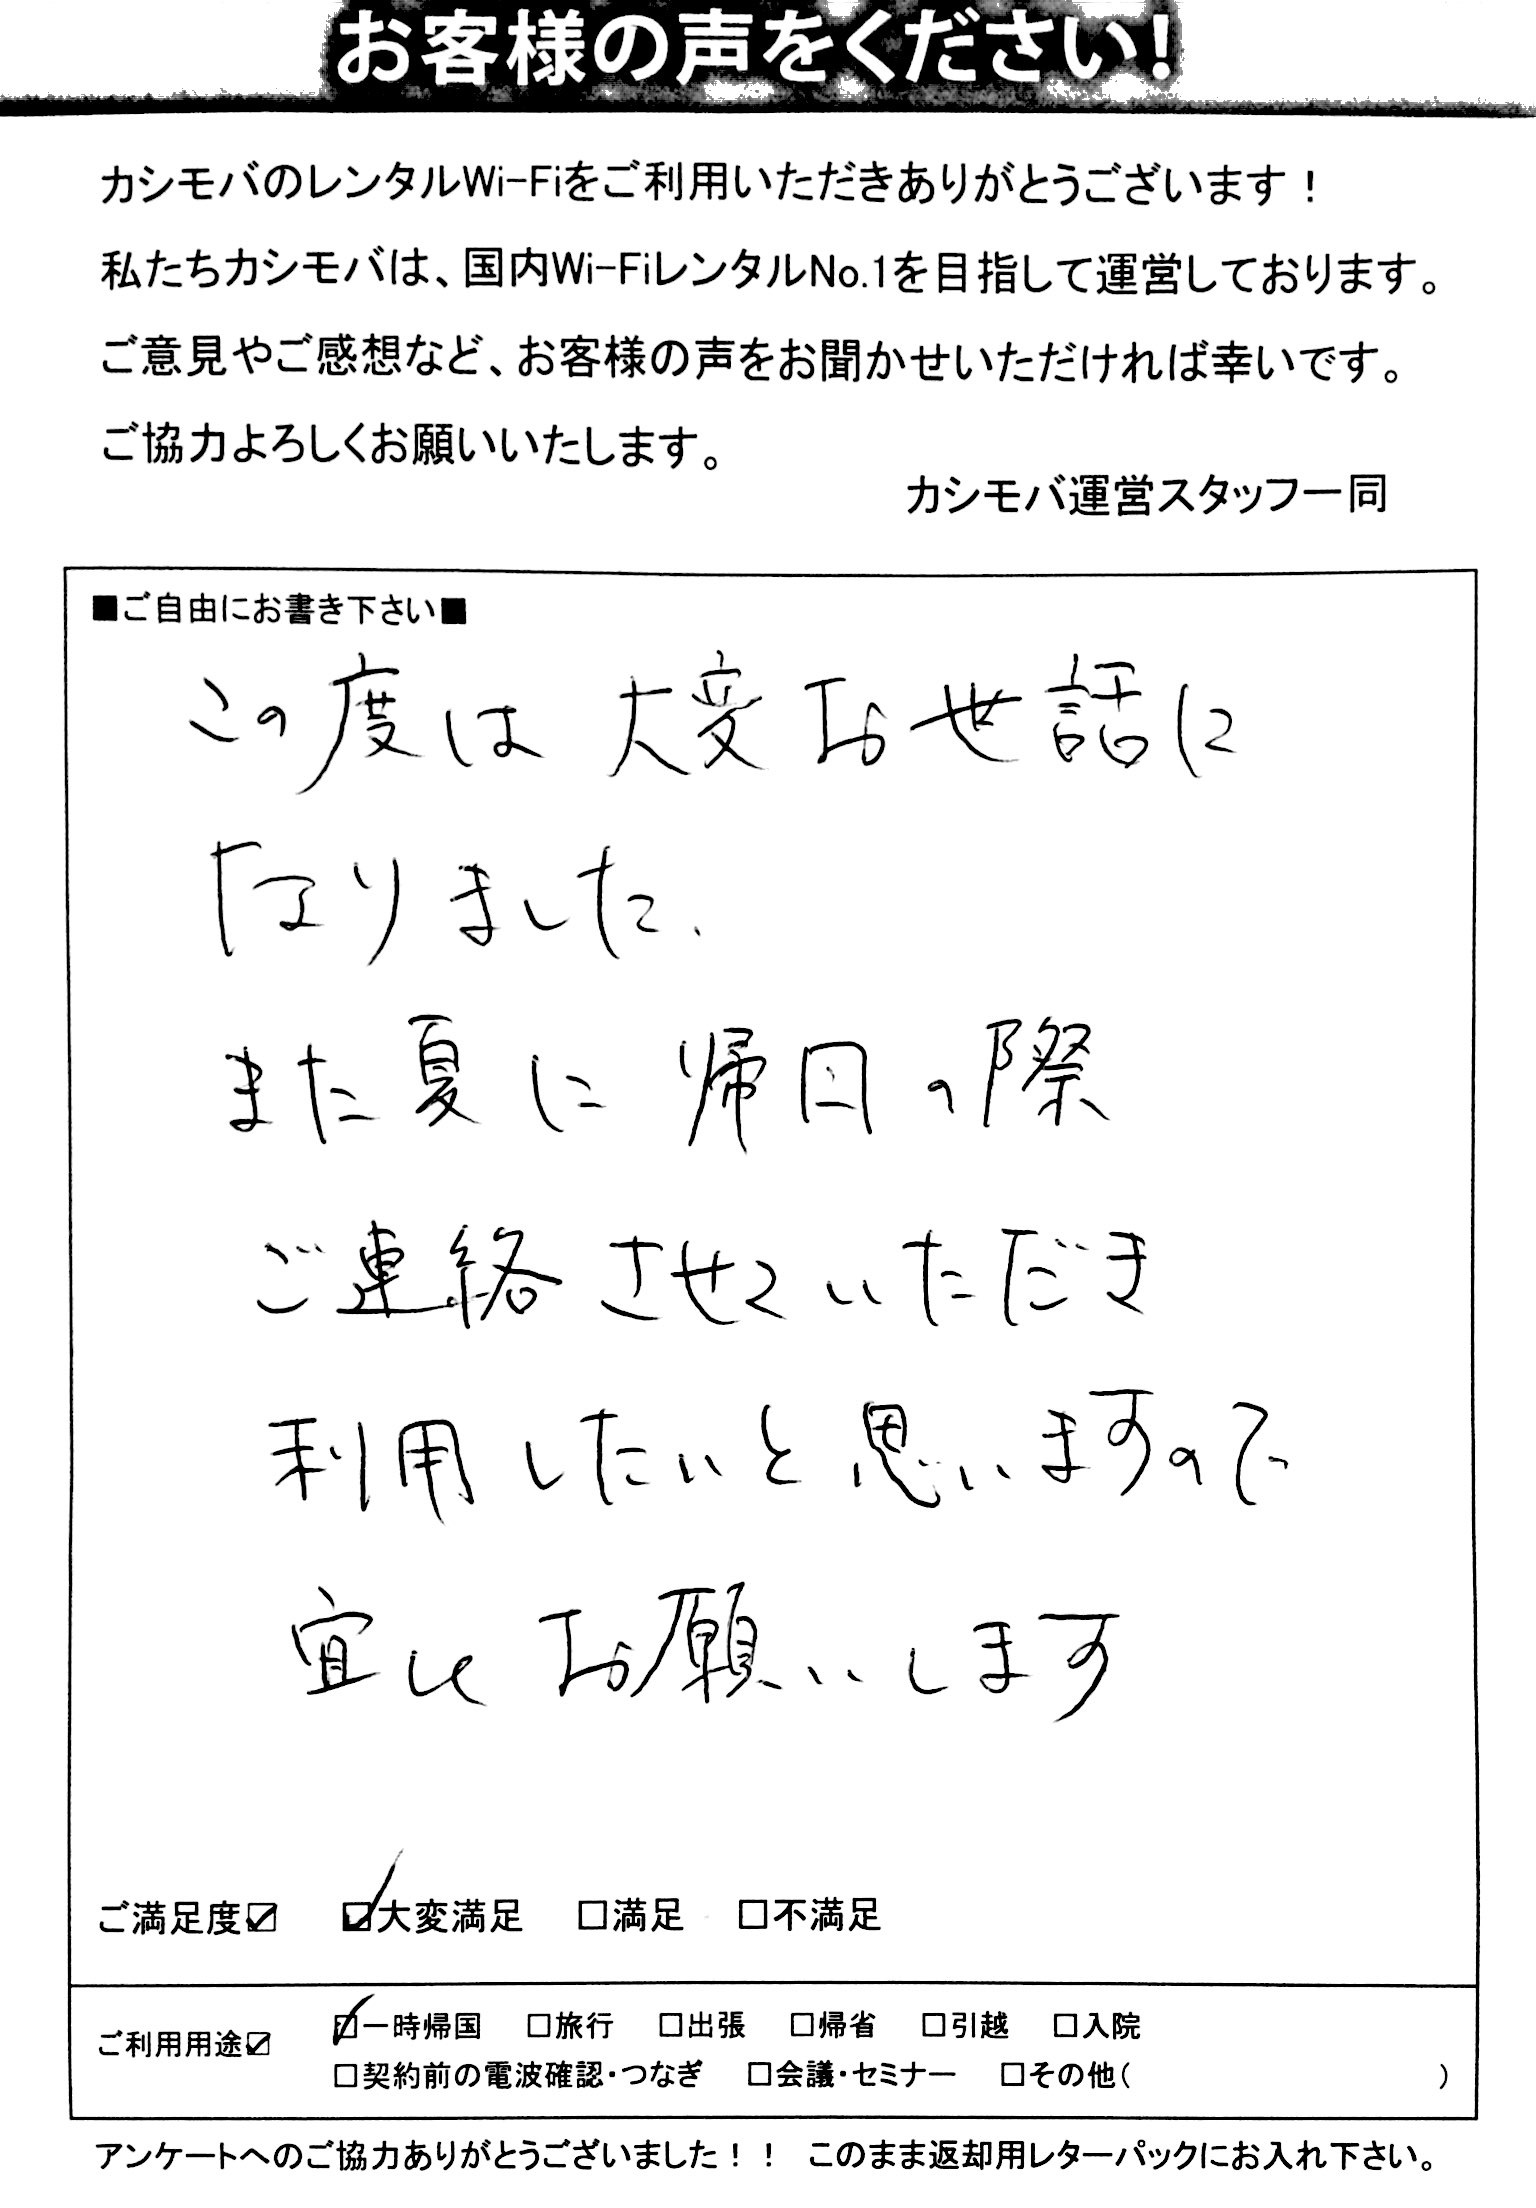 お客様の声をください!
カシモバのレンタルWi-Fiをご利用いただきありがとうございます！
私たちカシモバは、国内Wi-FiレンタルNo.1を目指して運営しております。
ご意見やご感想など、お客様の声をお聞かせいただければ幸いです。
ご協力よろしくお願いいたします。
カシモバ運営スタッフ一同
■ご自由にお書き下さい■
この度は 大変お世話に
なりました.
また夏に 帰日の際
ご連絡させていただき
利用したいと思いますので
宜しくお願いします
ご満足度☑ ☑大変満足 □満足 □不満足
ご利用用途☑ ☑一時帰国 □旅行 □出張 □帰省 □引越 □入院
□契約前の電波確認・つなぎ □会議・セミナー □その他( )
アンケートへのご協力ありがとうございました！！ このまま返却用レターパックにお入れ下さい。